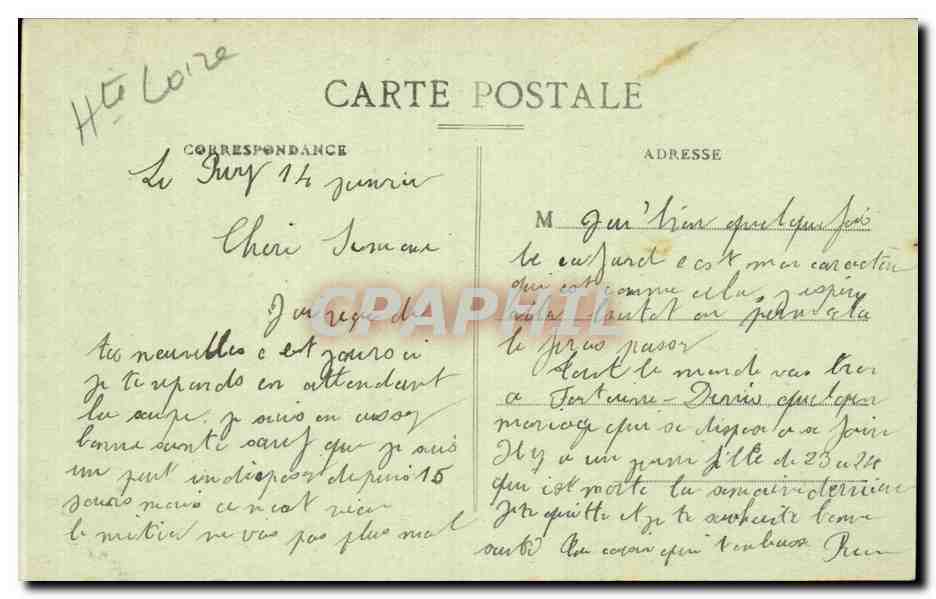 Hte Loire
CARTE POSTALE
CORRESPONDANCE
Le Puy 14 janvier
Cheri
J'ai reçu des
tes nouvelles c est jours ci
je te reponds en attendant
la soupe. je suis en assez
bonne santé sauf que je suis
un peut indisposer depuis 15
jours mais ce n est rien
le metier ne vas pas plus mal
ADRESSE
M J'ai bien quelque fois
le cafard c est mon caractère
qui est comme cela, j espère
le jours passer
tout le monde vas bien
a Fontaine-Denis quelques
mariage qui se dispose a se faire
Il y a un jeune fille de 23 a 24
qui est morte la semaine dernière
Je te quitte et je te souhaite bonne
santé Ton cousin qui t embrasse
CPAPHIL